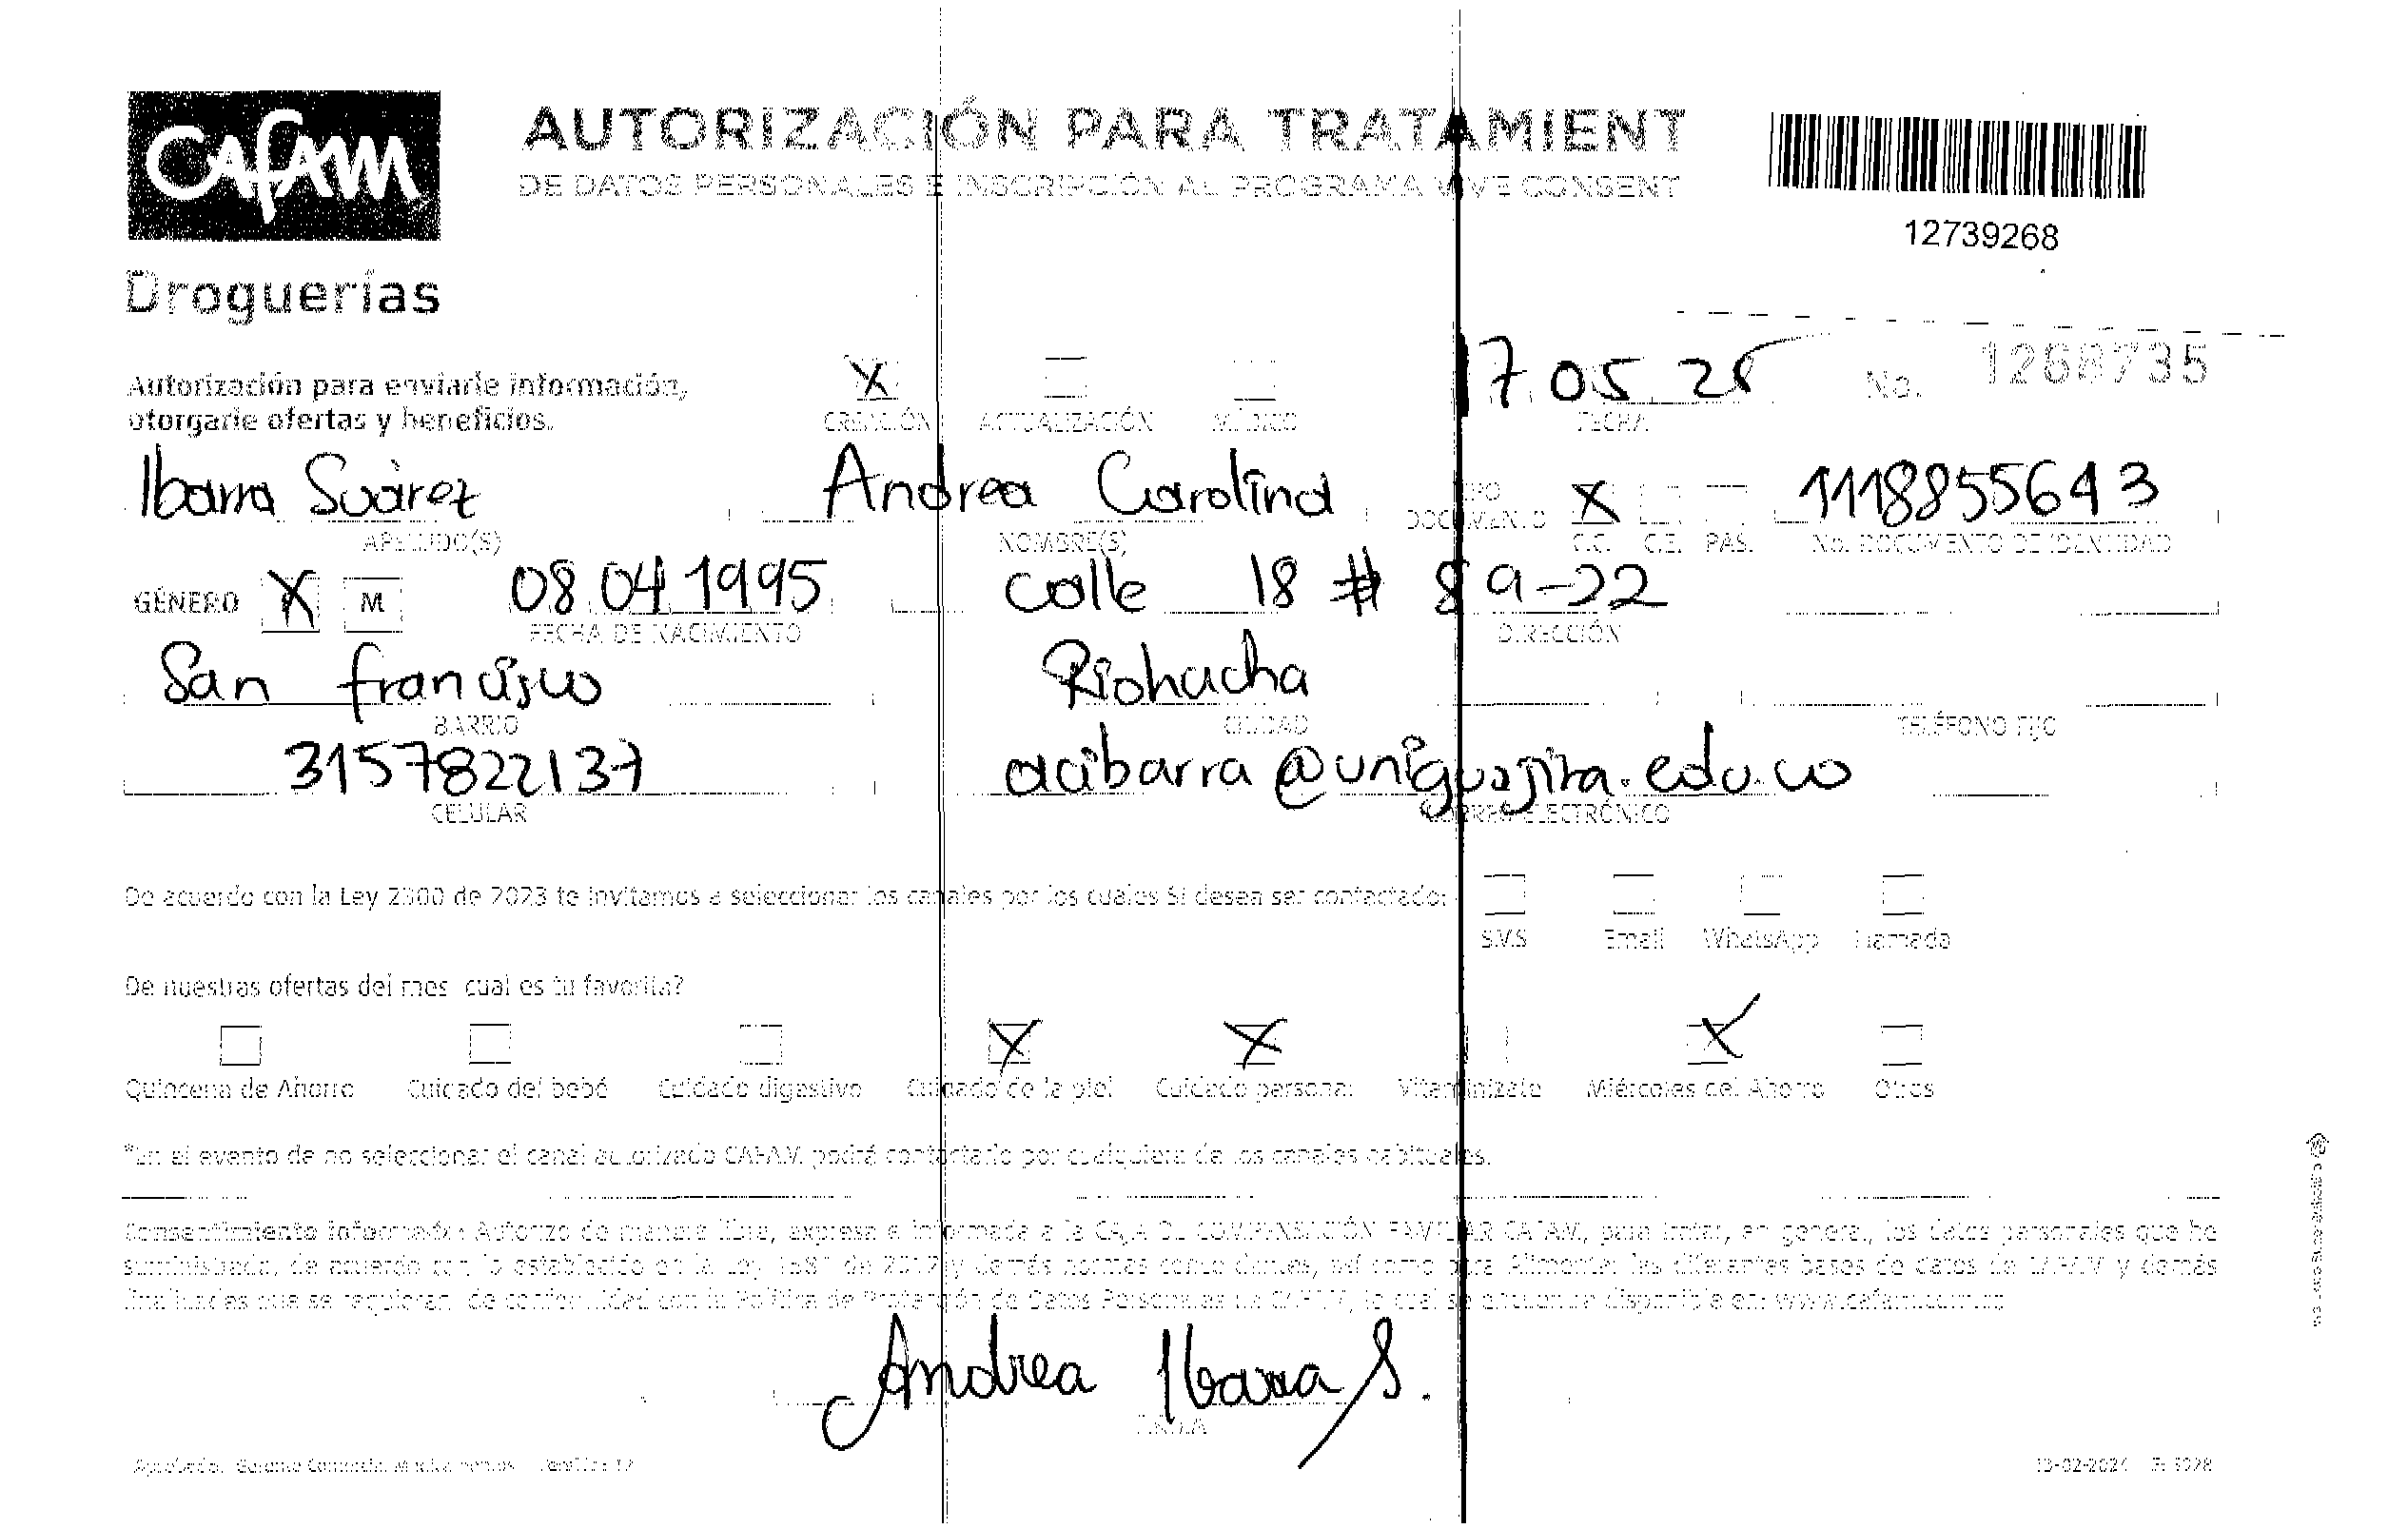 Cafam
Droguerías
AUTORIZACIÓN PARA TRATAMIENT
DE DATOS PERSONALES E INSCRIPCIÓN AL PROGRAMA VIVE CONSENT
12739268
Autorización para enviarle información,
otorgarle ofertas y beneficios.
X CREACIÓN ACTUALIZACIÓN MÉDICO
17 05 25 FECHA
No. 1268735
Ibarra Suàrez
APELLIDO(S)
Andrea Carolina
NOMBRE(S)
TIPO DOCUMENTO X C.C. C.E. PAS.
1118855643
No. DOCUMENTO DE IDENTIDAD
GÉNERO X M
08 04 1995
FECHA DE NACIMIENTO
Calle 18 # 8 9-22
DIRECCIÓN
San francisco
BARRIO
Riohacha
CIUDAD
TELÉFONO FIJO
3157822137
CELULAR
acibarra@uniguajira.edu.co
CORREO ELECTRÓNICO
De acuerdo con la Ley 2300 de 2023 te invitamos a seleccionar los canales por los cuales SI desea ser contactado:
SMS Email WhatsApp Llamada
De nuestras ofertas del mes cual es tu favorita?
X X X
Quincena de Ahorro Cuidado del bebé Cuidado digestivo Cuidado de la piel Cuidado personal Vitamínizate Miércoles del Ahorro Otros
*En el evento de no seleccionar el canal autorizado CAFAM podrá contactarlo por cualquiera de los canales habituales.
Consentimiento informado: Autorizo de manera libre, expresa e informada a la CAJA DE COMPENSACIÓN FAMILIAR CAFAM, para tratar, en general, los datos personales que he
suministrado, de acuerdo con lo establecido en la Ley 1581 de 2012 y demás normas concordantes, así como para Alimentar las diferentes bases de datos de CAFAM y demás
finalidades que se requieran de conformidad con la Política de Protección de Datos Personales de CAFAM, lo cual se encuentra disponible en: www.cafam.com.co
Andrea Ibarra S.
FIRMA
13-02-2024